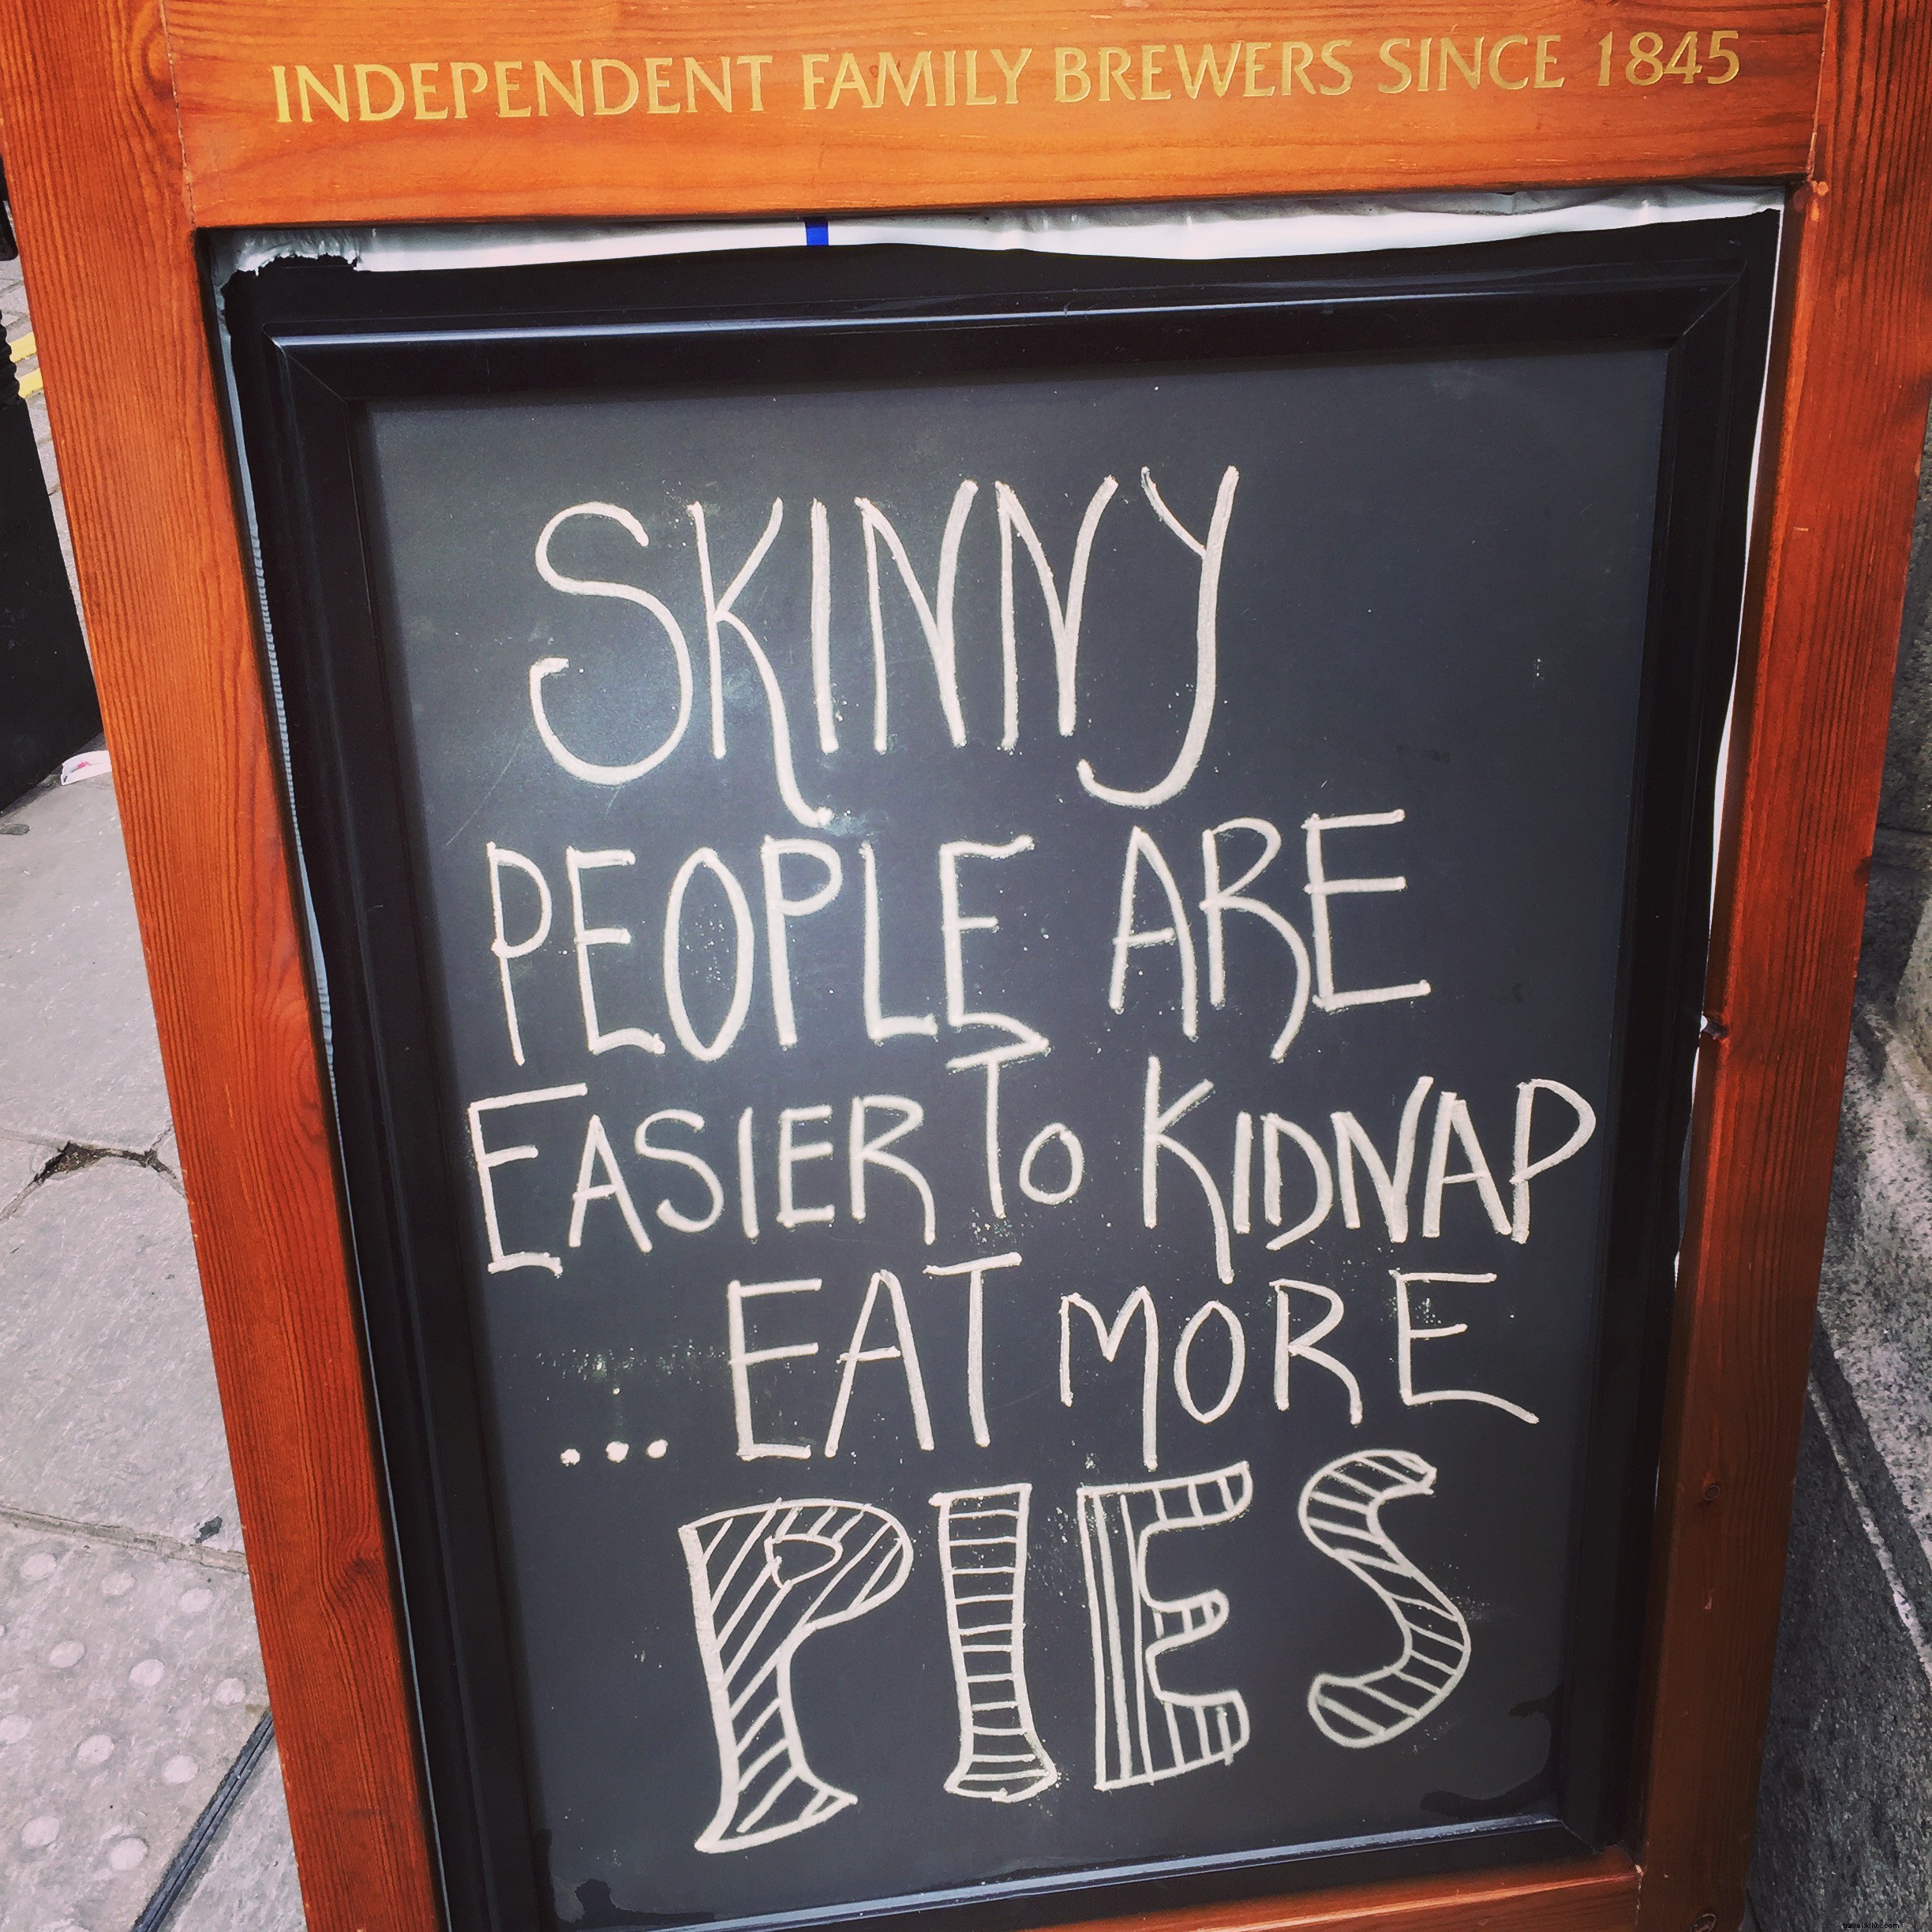 INDEPENDENT FAMILY BREWERS SINCE 1845
SKINNY
PEOPLE ARE
EASIER TO KIDNAP
... EAT MORE
PIES